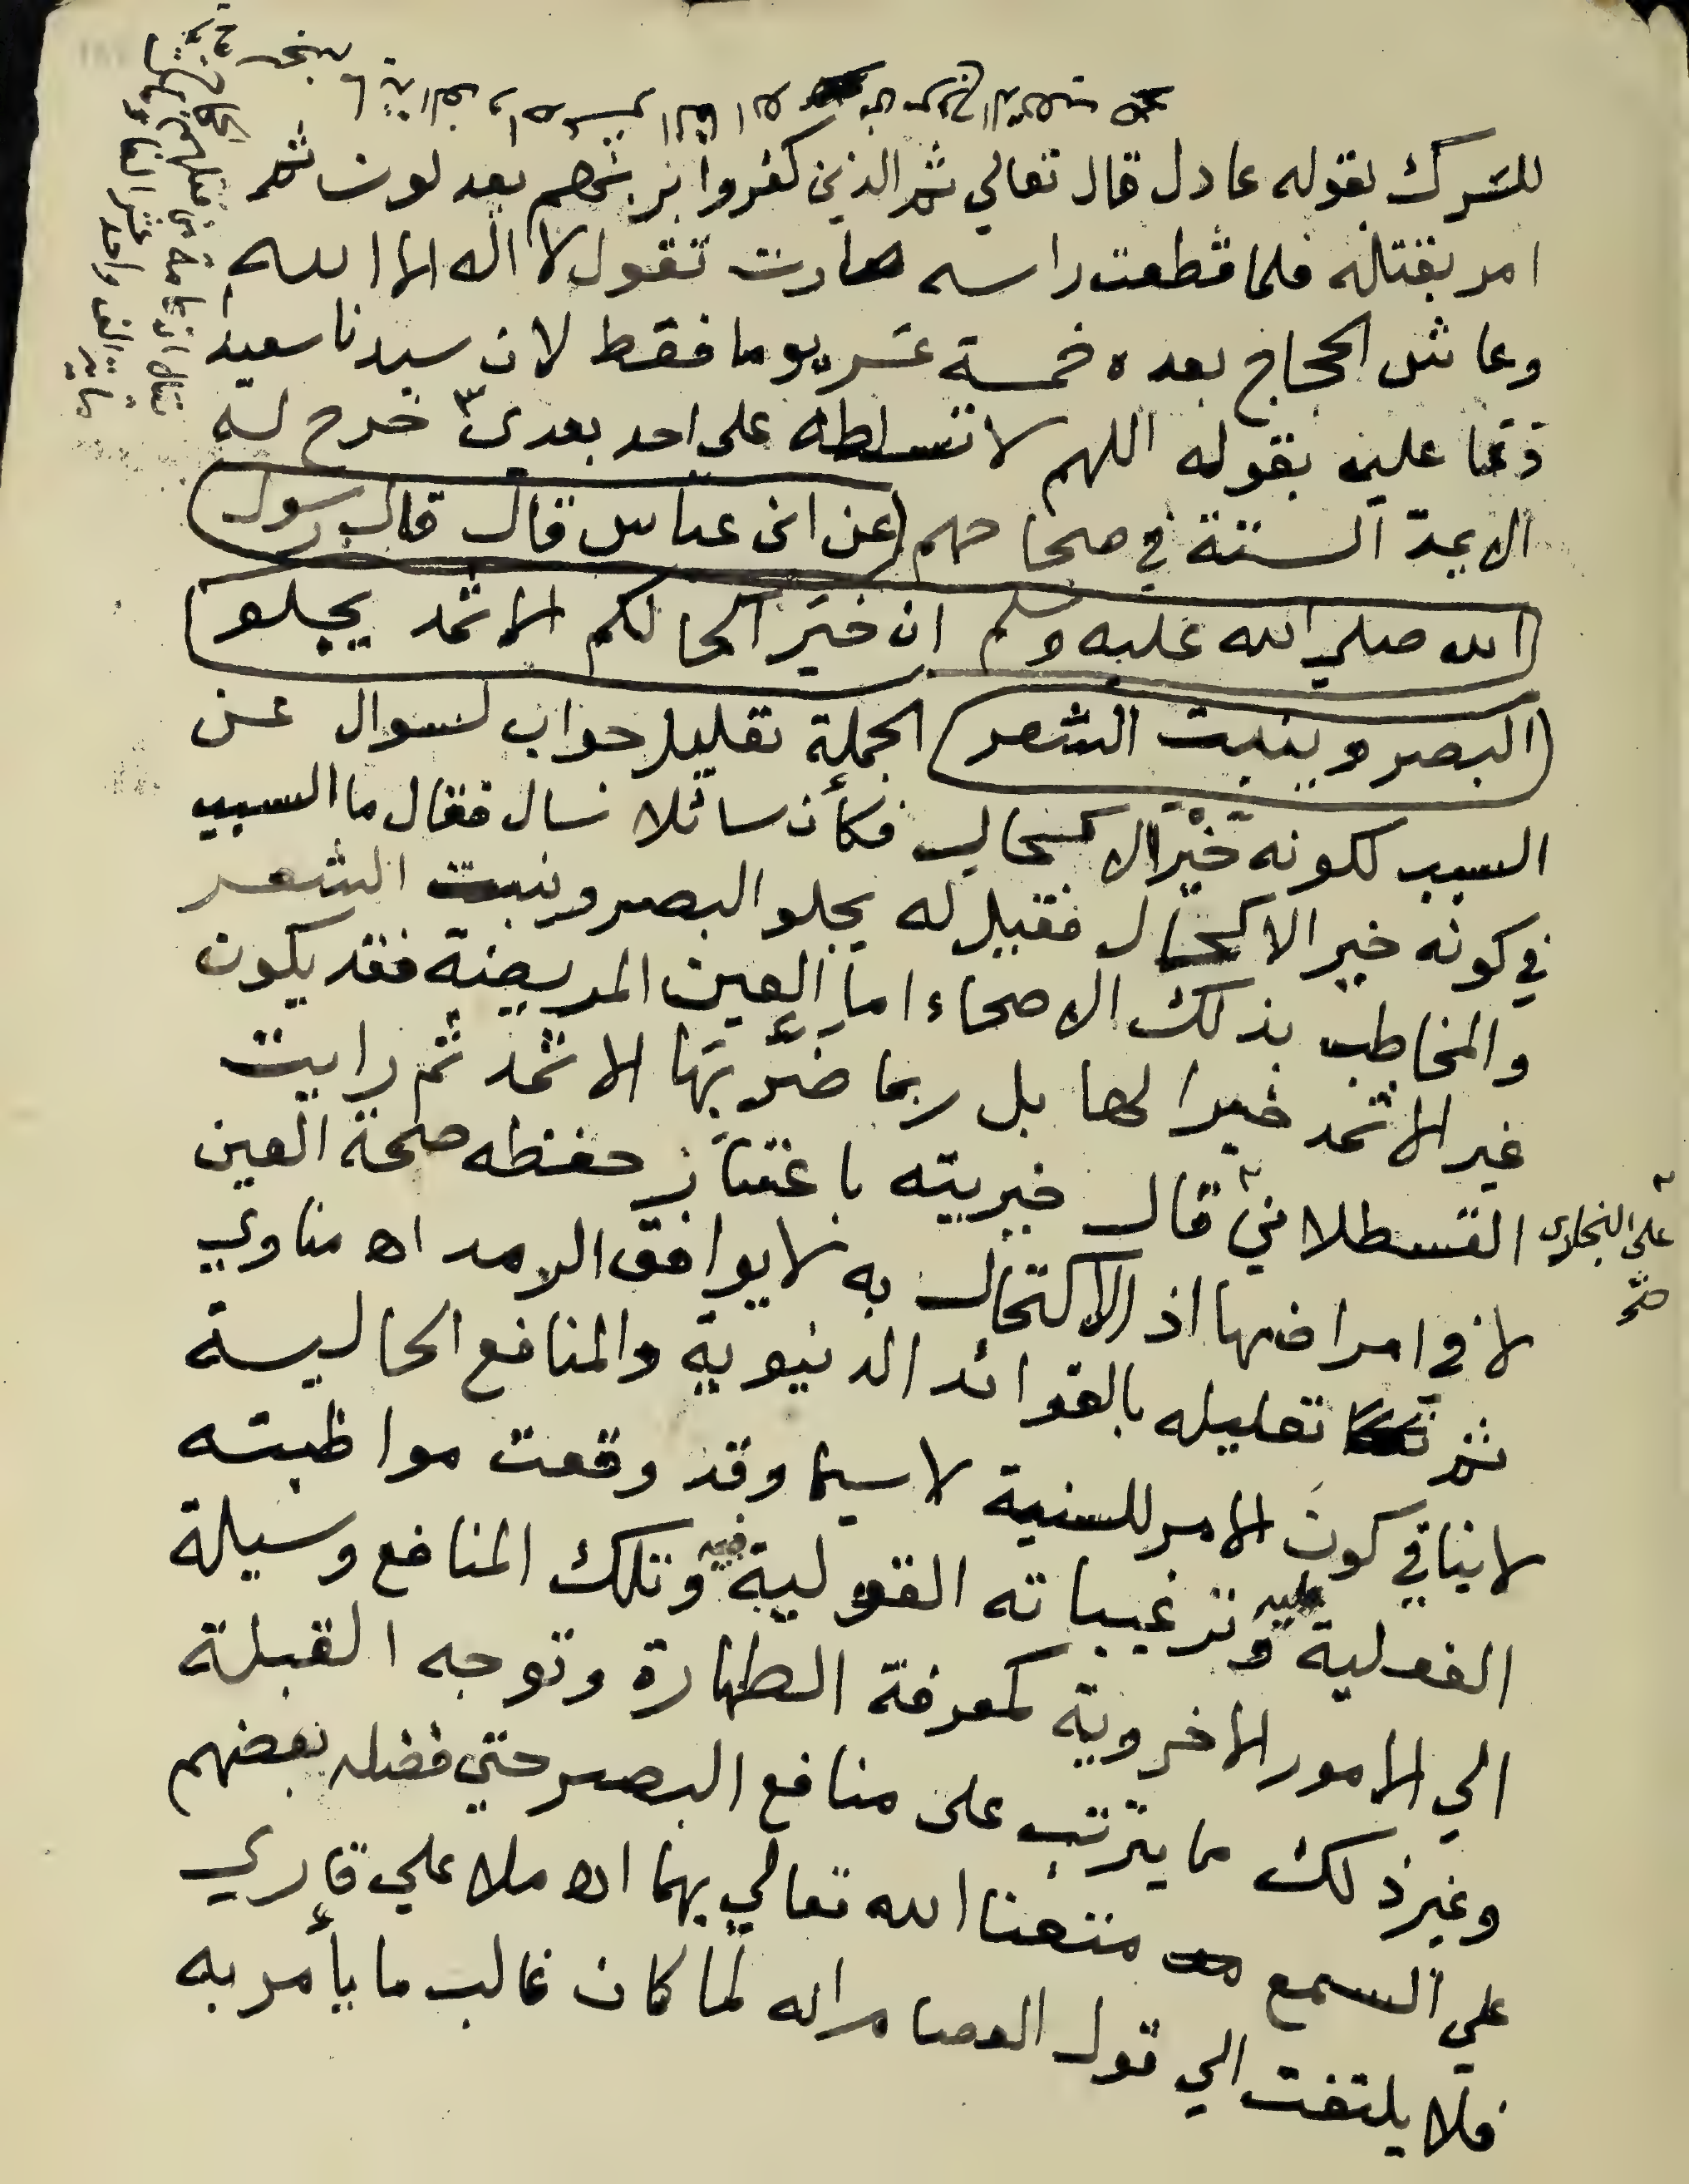 للشرك بقوله عادل قال تعالي ثم الذين كفروا بربهم يعدلون ثم
امر بقتله فلما قطعت راسه صارت تقول لا اله الا الله
وعاش الحجاج بعده خمسة عشر يوما فقط لان سيدنا سعيد
دعا عليه بقوله اللهم لا تسلطه على احد بعدي ٣ خرج له
الايمة الستة في صحاحهم (عن ابن عباس قال قال رسول
الله صلي الله عليه وسلم ان خير اكحالكم الاثمد يجلو
البصر وينبت الشعر) الجملة تعليل جواب لسوال عن
السبب لكونه خير الاكحال فكأن سائلا سال فقال ما السبب
في كونه خير الاكحال فقيل له يجلو البصر وينبت الشعر
والمخاطب بذلك الاصحاء اما العين المريضة فقد يكون
غير الاثمد خيرا لها بل ربما ضر بها الاثمد ثم رايت
القسطلاني قال خيريته باعتبار حفظه صحة العين
على البخاري
صح
لا في امراضها اذ الاكتحال به لا يوافق الرمد اه مناوي
ثم تعليله بالفوائد الدنيوية والمنافع الحالية
لا ينافي كون الامر للسنية لا سيما وقد وقعت مواظبته
الفعلية عليه وترغيباته القولية فيه وتلك المنافع وسيلة
الي الامور الاخروية كمعرفة الطهارة وتوجه القبلة
وغير ذلك مما يترتب على منافع البصر حتي فضله بعضهم
علي السمع متعنا الله تعالي بهما اه ملا علي قاري
فلا يلتفت الي قول العصام انه لما كان غالب ما يأمر به